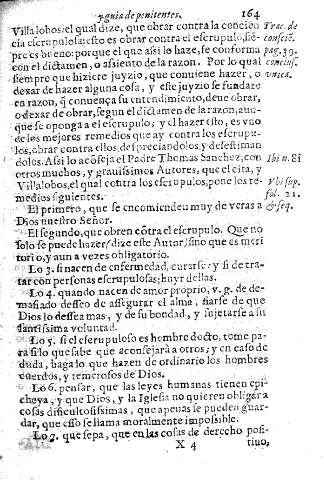 y guia de penitentes. 164
Villalobos: el qual dize, que obrar contra la concien
cia escrupulosa: esto es obrar contra el escrupulo, siẽ-
pre es bueno: porque el que assi lo haze, se conforma
con el dictamen, o assiento de la razon. Por lo qual
siempre que hiziere juyzio, que conuiene hazer, o
dexar de hazer alguna cosa, y este juyzio se fundare
en razon, q̃ conuença su entendimiento, deue obrar,
o dexar de obrar, segun el dictamen de la razon, aun-
que se oponga a el escrupulo; y el hazer esto, es vno
de los mejores remedios que ay contra los escrupu-
los, obrar contra ellos, despreciandolos, y desestiman
dolos. Assi lo acõseja el Padre Thomas Sanchez, con
otros muchos, y grauissimos Autores, que el cita, y
Villalobos, el qual contra los escrupulos, pone los re-
medios siguientes.
El primero, que se encomienden muy de veras a
Dios nuestro Señor.
El segundo, que obren cõtra el escrupulo. Que no
solo se puede hazer (dize este Autor) sino que es meri
torio, y aun a vezes obligatorio.
Lo 3. si nacen de enfermedad, curarse; y si de tra-
tar con personas escrupulosas; huyr dellas.
Lo 4. quando nacen de amor proprio, v. g. de de-
masiado desseo de assegurar el alma, fiarse de que
Dios lo dessea mas, y de su bondad, y sujetarse a su
santissima voluntad.
Lo 5. si el escrupuloso es hombre docto, tome pa-
ra si lo que sabe que aconsejarà a otros; y en caso de
duda, haga lo que hazen de ordinario los hombres
cuerdos, y temerosos de Dios.
Lo 6. pensar, que las leyes humanas tienen epi-
cheya, y que Dios, y la Iglesia no quieren obligar a
cosas dificultosissimas, que apenas se pueden guar-
dar, que esso se llama moralmente impossible.
Lo 7. que sepa, que en las cosas de derecho posi-
X 4 tiuo,
Trac. de
consciẽ.
pag. 39.
conclus.
vnica.
Ibi n. 81
Vbi sup.
fol. 21.
& seq.